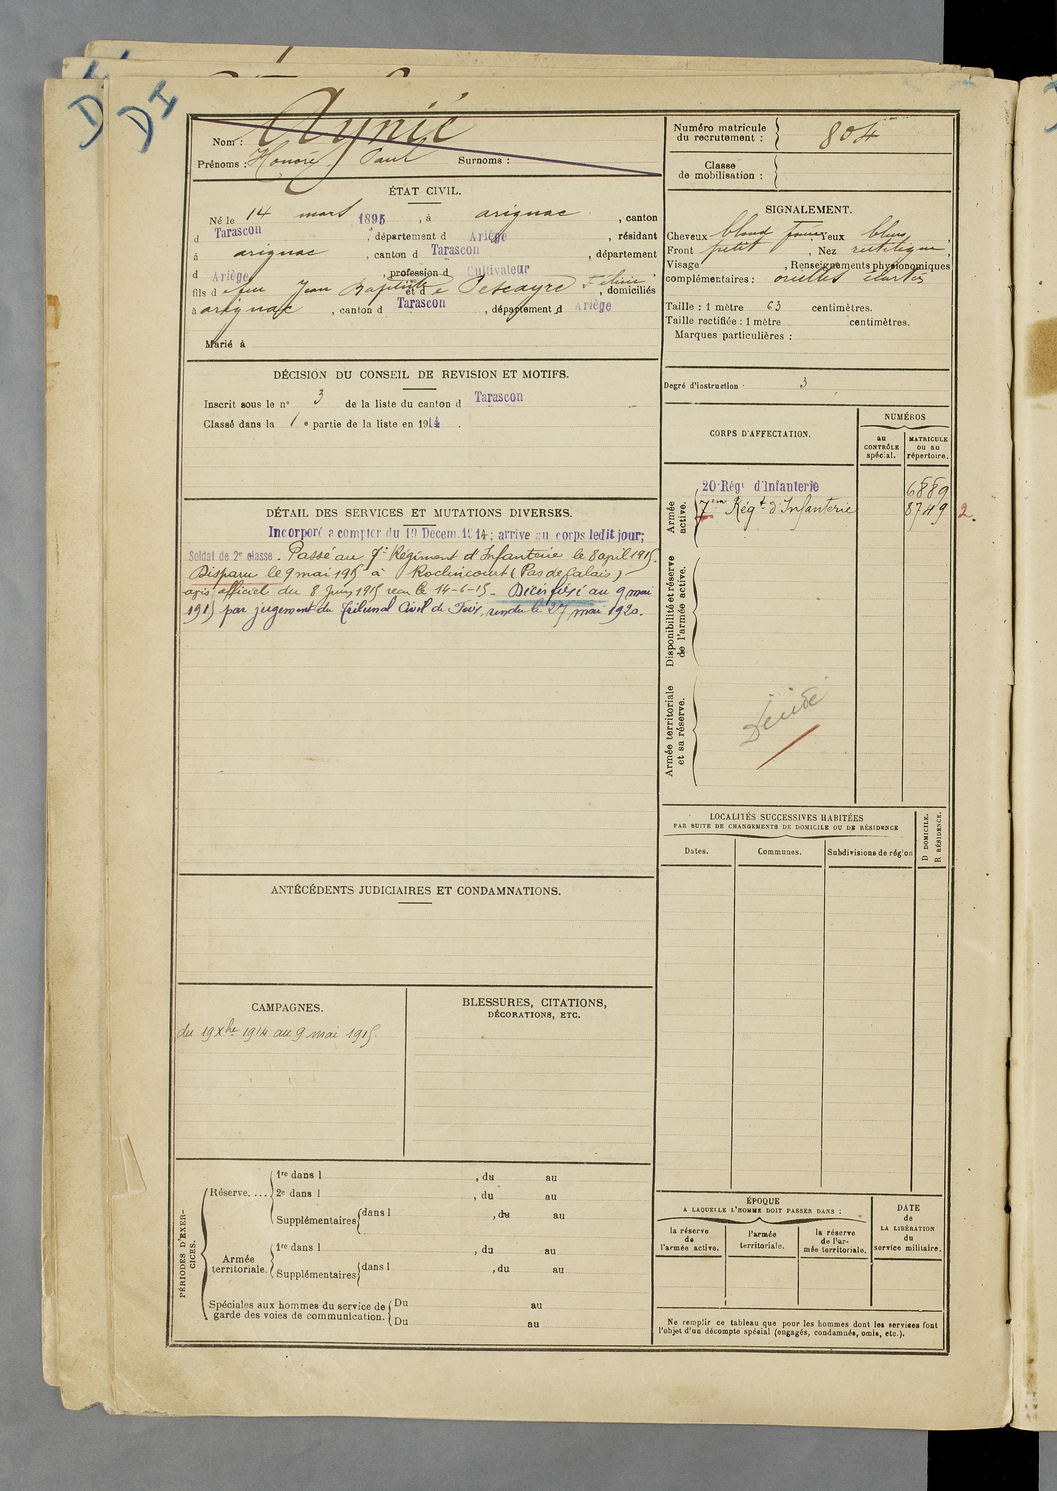 DI
DI
Nom : Aynié
Prénoms : Honoré Paul Surnoms :
Numéro matricule du recrutement : 804
Classe de mobilisation :
ÉTAT CIVIL.
Né le 14 mars 1895, à arignac, canton
d Tarascon, département d Ariège, résidant
à arignac, canton d Tarascon, département
d Ariège, profession d Cultivateur
fils d e feu Jean Baptiste et d e Pescayre Féline, domiciliés
à arignac, canton d Tarascon, département d Ariège
Marié à
SIGNALEMENT.
Cheveux blond foncé, Yeux bleus
Front petit, Nez rectiligne ;
Visage , Renseignements physionomiques
complémentaires : oreilles écartées
Taille : 1 mètre 63 centimètres.
Taille rectifiée : 1 mètre centimètres.
Marques particulières :
Degré d'instruction 3
DÉCISION DU CONSEIL DE REVISION ET MOTIFS.
Inscrit sous le n° 3 de la liste du canton d Tarascon
Classé dans la 1 e partie de la liste en 1914.
CORPS D'AFFECTATION.
NUMÉROS
au CONTRÔLE spécial.
MATRICULE ou au répertoire.
Armée active.
20e Régt d'Infanterie 6889
7ème Régt d'Infanterie 8749 2.
Disponibilité et réserve de l'armée active.
Armée territoriale et sa réserve.
Décédé
DÉTAIL DES SERVICES ET MUTATIONS DIVERSES.
Incorporé a compter du 19 Décem. 1914 ; arrivé au corps ledit jour;
Soldat de 2e classe. Passé au 7e Régiment d'Infanterie le 8 april 1915.
Disparu le 9 mai 1915 à Roclincourt (Pas de Calais) -
avis officiel du 8 Juin 1915 reçu le 14-6-15. Décès fixé au 9 mai
1915 par jugement du Tribunal Civil de Foix, rendu le 27 mai 1920.
LOCALITÉS SUCCESSIVES HABITÉES
PAR SUITE DE CHANGEMENTS DE DOMICILE OU DE RÉSIDENCE
Dates.
Communes.
Subdivisions de région
D DOMICILE.
R RÉSIDENCE.
ANTÉCÉDENTS JUDICIAIRES ET CONDAMNATIONS.
CAMPAGNES.
du 19 Xbre 1914 au 9 mai 1915
BLESSURES, CITATIONS,
DÉCORATIONS, ETC.
PÉRIODES D'EXERCICES.
Réserve....
1re dans l , du au
2e dans l , du au
Supplémentaires dans l , du au
Armée territoriale.
1re dans l , du au
Supplémentaires dans l , du au
Spéciales aux hommes du service de garde des voies de communication.
Du au
Du au
ÉPOQUE
A LAQUELLE L'HOMME DOIT PASSER DANS :
la réserve de l'armée active.
l'armée territoriale.
la réserve de l'armée territoriale.
DATE de LA LIBÉRATION du service militaire.
Ne remplir ce tableau que pour les hommes dont les services font
l'objet d'un décompte spécial (engagés, condamnés, omis, etc.).